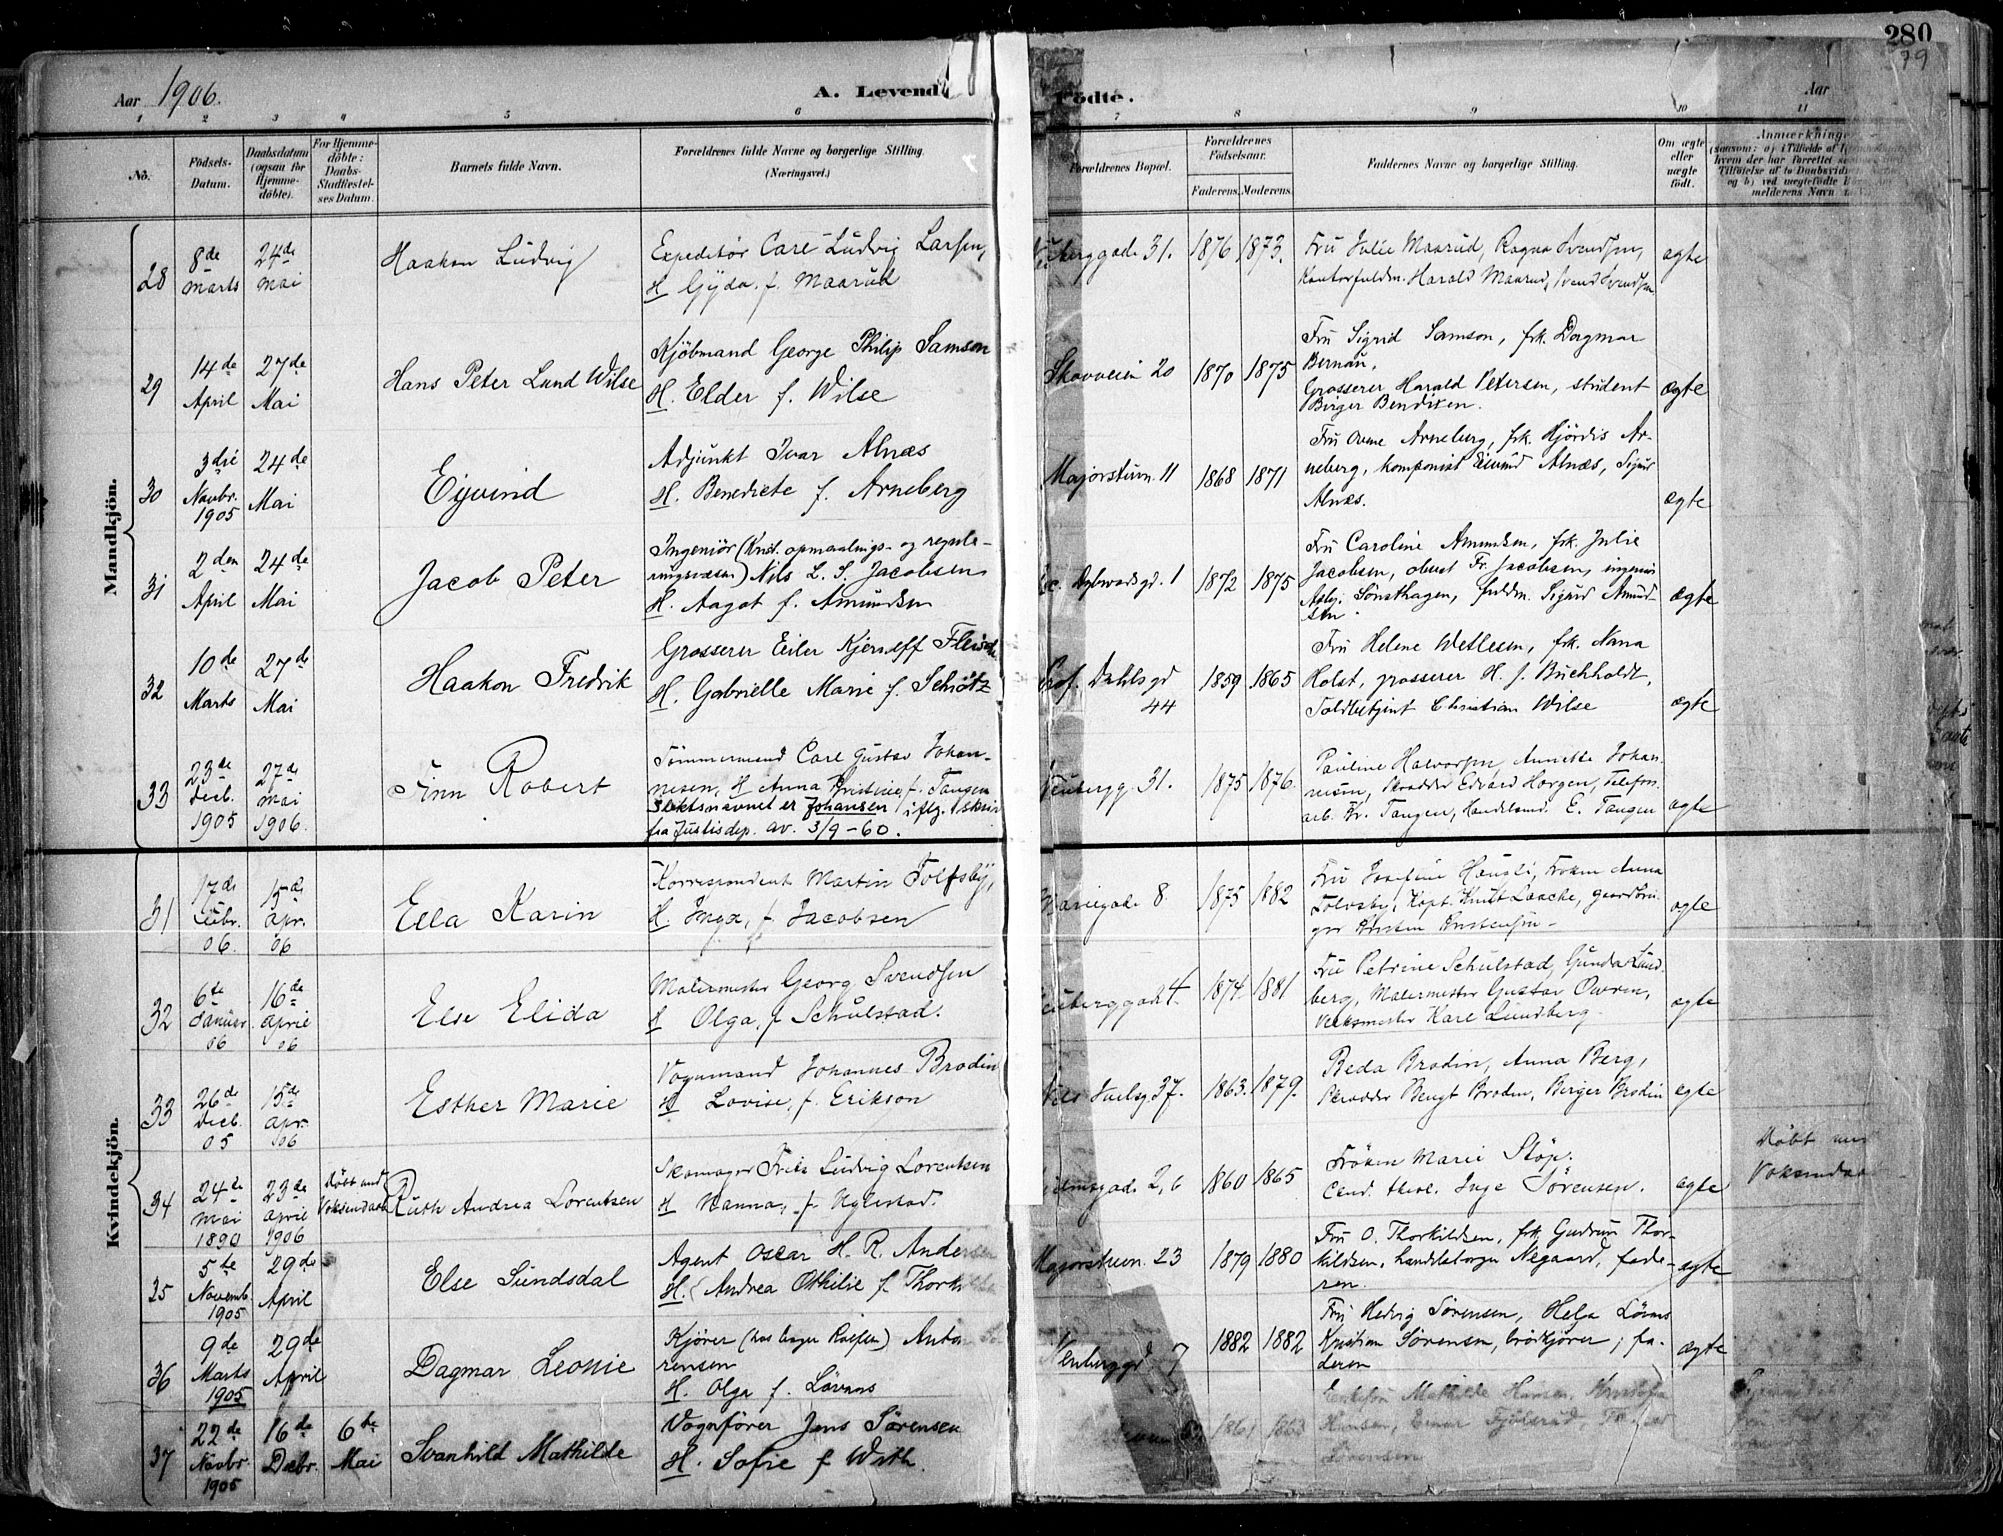 280
79
Aar 1906.
A. Levende
Födte.
Aar
1 2 3 4 5 6 7 8 9 10 11
No. Födsels-Datum. Daabsdatum (ogsaa for Hjemmedöbte). For Hjemmedöbte: Daabs-Stadfæstelses Datum. Barnets fulde Navn. Forældrenes fulde Navne og borgerlige Stilling. (Næringsvei.) Forældrenes Bopæl. Forældrenes Födselsaar. Faderens. Moderens. Faddernes Navne og borgerlige Stilling. Om ægte eller uægte födt.
Mandkjön.
28 8de Marts 24de Mai Haakon Ludvig
Expeditör Carl Ludvig Larsen,
H Gyda, f. Maarud
31. 1876 1873.
Fru Julie Maarud, Ragna Svendsen,
Kontorfuldm. Harald Maarud, Svend Svendsen
ægte
29 14de April 27de Mai Hans Peter Lund Wilse
Kjöbmand George Philip Samson
H. Elder f. Wilse
Skovveien 20 1870 1875
Fru Sigrid Samson, frk. Dagmar
Bernau,
Grosserer Harald Petersen, student
Birger Bendixen.
ægte
30 3die Novbr. 1905 24de Mai Eyvind
Adjunkt Ivar Alnæs
H. Benedicte f. Arneberg
Majorstuen 11 1868 1871
Fru Arneberg, frk. Hjördis Ar-
neberg, komponist Eivind Alnæs, Sigurd
Alnæs.
ægte
31 2den April 24de Mai Jacob Peter
Ingeniör (Krist. opmaalings- og regule-
ringsvæsen) Nils L. S. Jacobsen
H. Aagot f. Amundsen
Dybwadsgd. 1 1872 1875
Fru Caroline Amundsen, frk. Julie
Jacobsen, oberst Fr. Jacobsen, ingeniör
Asbj. Sönsthagen, fuldm. Sigurd Amund-
sen.
ægte
32 10de Marts 27de Mai Haakon Fredrik
Grosserer Eiler Kjerulff Fleischer
H. Gabrielle Marie f. Schötz
Prof. Dahls gd 44 1859 1865
Fru Helene Wetlesen, frk. Nana
Holst, grosserer H. J. Buchholdt,
Toldbetjent Christian Wilse
ægte
33 23de Decb. 1905 27de Mai 1906. Finn Robert
Tömmermand Carl Gustav Johan-
nesen, H Anna Kristine, f. Tangen
Slektsnavnet er Johansen iflg. skriv
fra Justisdep. av. 3/9-60.
31. 1875 1876.
Pauline Halvorsen, Annette Johan-
nesen, Skrædder Edvard Horgen, Telefon-
arb. Kr. Tangen, Handelsmd. E. Tangen
ægte
Kvindekjön.
31 17de Febr. 06. 15de apr. 06 Ella Karin
Korrespondent Martin Tolfsby,
H. Inga, f. Jacobsen
8 1875 1882
Fru Josefine Hausli, Fröken Anna
Tolvsby, Kapt. Knut Laache, gaardbru-
ger Kristen Kristensen -
ægte
32 6te Januar 06 16de April 06 Else Elida
Malermester Georg Svendsen
H Olga, f Schulstad.
4. 1874. 1881
Fru Petrine Schulstad, Gunda Lund-
berg, Malermester Gustav Owren,
Verksmester Karl Lundberg.
ægte
33 26de Decb. 05 15de apr. 06 Esther Marie
Vognmand Johannes Brodin
H Lovise, f. Erikson
Nils Juelsg. 37. 1863. 1879.
Beda Brodin, Anna Berg,
Skrædder Bengt Brodin, Berger Brodin
ægte
34 24de Mai 1890 23de April 1906 Döbt ved Voksendaab Ruth Andrea Lorentsen
Skomager Frits Ludvig Lorentsen
H Nanna, f Nylestad.
2, 6 1860 1865
Fröken Marie Stöp.
Cand. theol. Inge Sörensen.
ægte
Döbt ved
Voksendaab
35 5te Novemb. 1905 29de April Else Sundsdal
Agent Oscar H. R. Andersen
H. Andrea Othilie f. Thorkildsen
Majorstuen 23 1879 1880
Fru O. Thorkildsen, frk. Gudrun Thor-
kildsen, handelsborger Negaard, fade-
ren.
ægte
36 9de Marts 1905 29de April Dagmar Leonie
Kjörer Anton Sö-
rensen
H. Olga f. Lövaas
Neuberggd. 7 1882 1882
Fru Hedvig Sörensen, Helga Lövaas
Kristian Sörensen, brödkjörer, fa-
deren
ægte
37 22de Novbr 1905 16de Decbr. 6te Mai Svanhild Mathilde
Vognförer Jens Sörensen
H. Sofie f With.
1861 1863
Mathilde Hansen,
Hansen, Einar Fjölsrud,
Sörensen